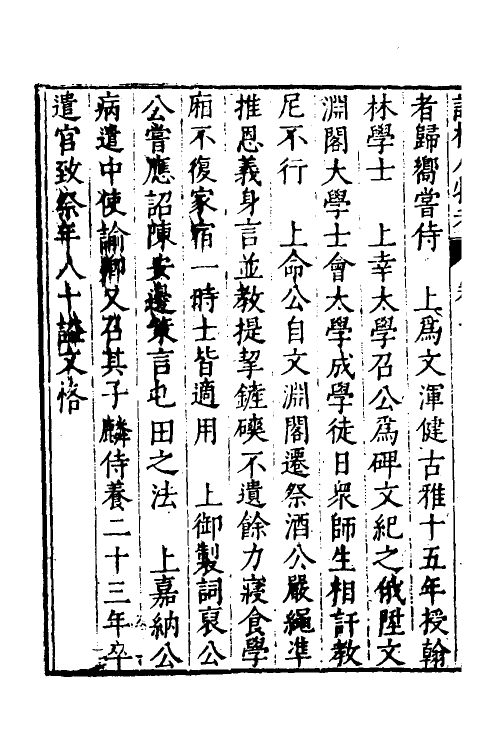 者歸嚮嘗侍　上爲文渾健古雅十五年授翰
林學士　上幸太學召公爲碑文紀之俄陞文
淵閣大學士會太學成學徒日衆師生相訐教
尼不行　上命公自文淵閣遷祭酒公嚴繩準
推恩義身言並教提挈鏟磢不遺餘力寢食學
廂不復家宿一時士皆適用　上御製詞裒公
公嘗應詔陳安邊策言屯田之法　上嘉納公
病遣中使諭卿又召其子麟侍養二十三年卒
遣官致祭年八十謚文恪